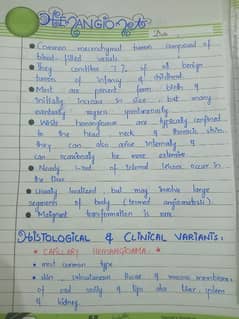 HEMANGIOMA
Common mesenchymal tumor composed of
blood-filled vessels.
They constitute 7% of all benign
tumors of infancy & childhood.
Most are present from birth &
initially increase in size, but many
eventually regress spontaneously.
While hemangiomas are typically confined
to the head neck & thoracic skin,
they can also arise internally &
can occasionally be more extensive
Nearly 1-3rd of internal lesions occur in
the liver.
Usually localized, but may involve large
segments of body (termed angiomatosis).
Malignant transformation is rare.
HISTOLOGICAL & CLINICAL VARIANTS:
* CAPILLARY HEMANGIOMA: *
most common type
skin, subcutaneous tissue & mucous membranes
of oral cavity & lips also liver, spleen
& kidney.